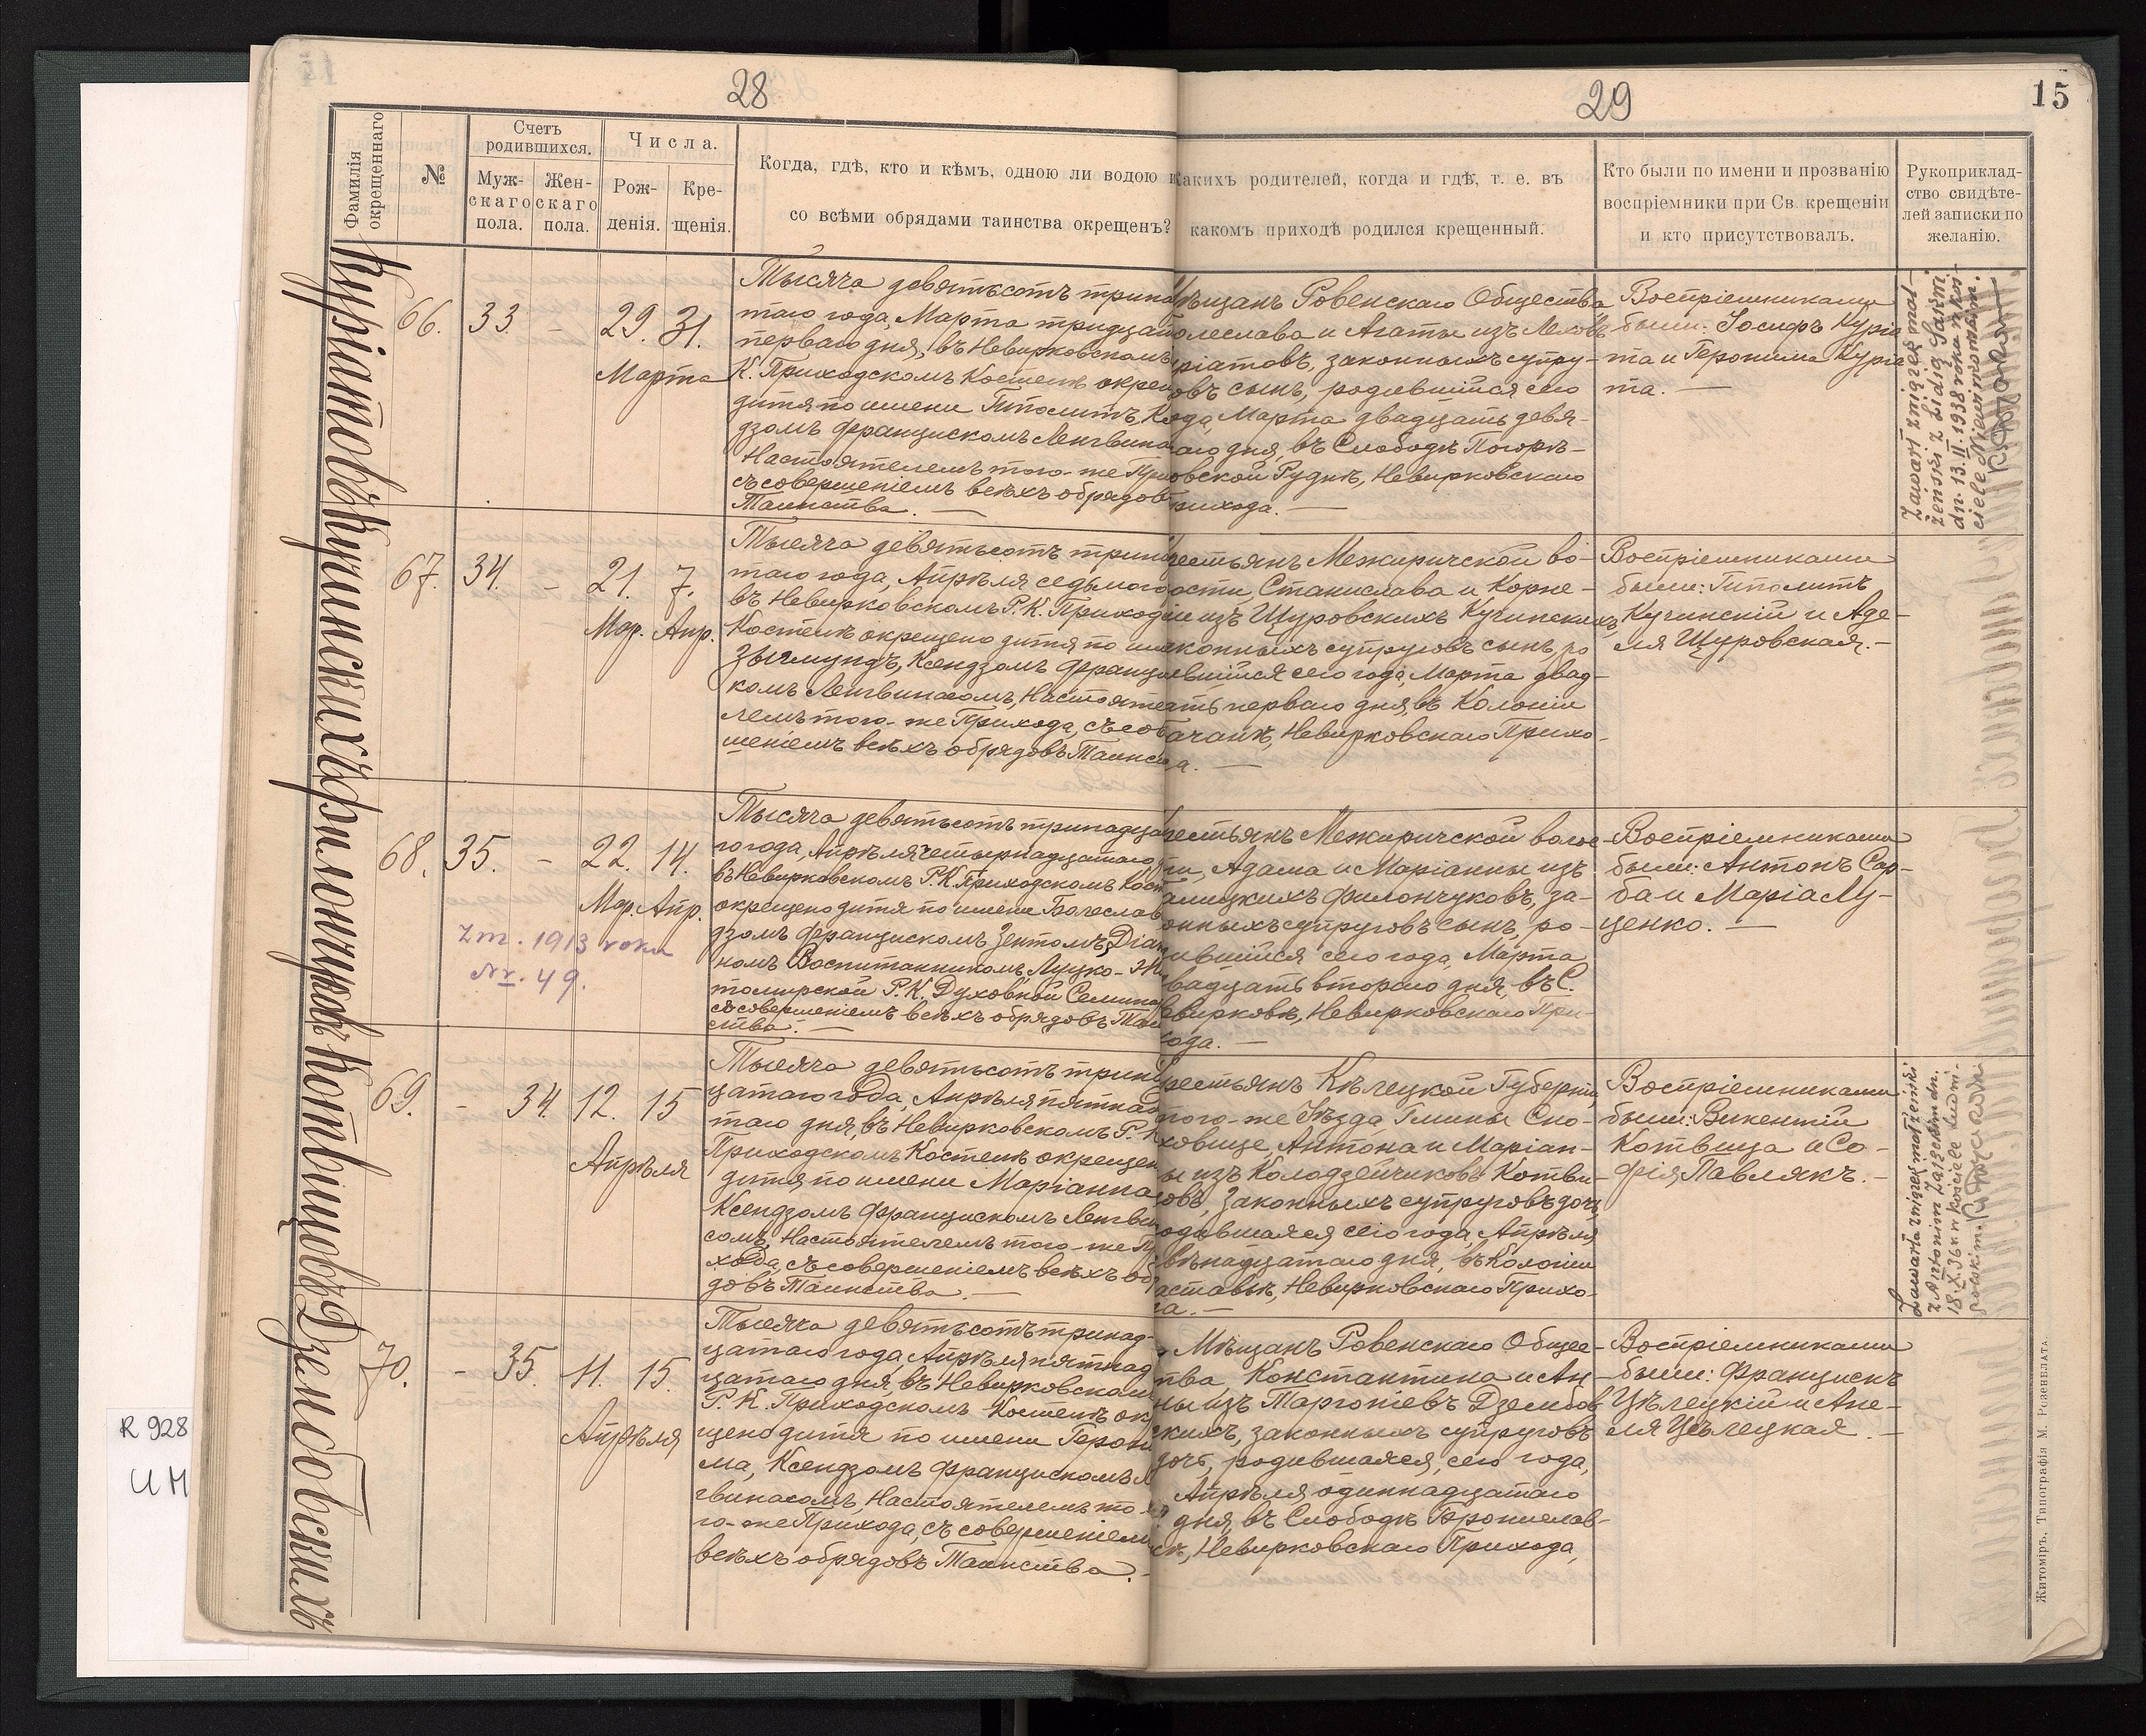 28
29
15
Фамилія окрещеннаго
№
Счетъ родившихся.
Мужскаго пола.
Женскаго пола.
Числа.
Рожденія.
Крещенія.
Когда, гдѣ, кто и кѣмъ, одною ли водою и
со всѣми обрядами таинства окрещенъ?
Какихъ родителей, когда и гдѣ, т. е. въ
какомъ приходѣ родился крещенный.
Кто были по имени и прозванію
воспріемники при Св. крещеніи
и кто присутствовалъ.
Рукоприклад-
ство свидѣте-
лей записки по
желанію.
Куріатовъ
66. 33. - 29. 31.
Марта
Тысяча девятьсотъ трина
таго года, Марта тридцат
перваго дня, въ Невирковскомъ
К. Приходскомъ Костелѣ окрещ
дитя по имени Гиполитъ, К
дзомъ Францискомъ Ленгвина
Настоятелемъ того-же При
съ совершеніемъ всѣхъ обрядовъ
Таинства. —
ѣщанъ Ровенскаго Общества
олеслава и Агаты изъ
ріатовъ, законныхъ супру-
овъ сынъ, родившійся сего
ода, Марта двадцать девя-
аго дня, въ Слободѣ Погорѣ-
овской Рудиѣ, Невирковскаго
рихода. —
Воспріемниками
были: Іосифъ Куріа
та и Геронима Куріа
та. —
Zawarł związek mał-
żeński z Lidią
dn. 13.II.1938 roku w koś-
ciele Niewirkowskim.
Кучинскихъ
67. 34. - 21. 7.
Мар. Апр.
Тысяча девятьсотъ трин
таго года, Апрѣля седьмого
въ Невирковскомъ Р. К. Приход
Костелѣ окрещено дитя по им
Зыгмундъ, Ксендзомъ Францис
комъ Ленгвинасомъ, Настояте
лемъ того-же Прихода, съ сов
шеніемъ всѣхъ обрядовъ Таинс
рестьянъ Межиричской во-
ости, Станислава и Корне-
іи изъ Щуровскихъ Кучинскихъ,
аконныхъ супруговъ сынъ, ро
ившійся сего года, Марта двад-
ать перваго дня, въ Колоніи
Невирковскаго Прихо-
а. —
Воспріемниками
были: Гиполитъ
Кучинскій и Аде-
ля Щуровская. -
Филончуковъ
68. 35. - 22. 14.
Мар. Апр.
Zm. 1913 roku
Nr. 49.
Тысяча девятьсотъ тринадца
го года, Апрѣля четырнадцатаго
въ Невирковскомъ Р. К. Приходскомъ Кост
окрещено дитя по имени Болеслав
дзомъ Францискомъ Зентомъ, Діак
номъ Воспитанникомъ, Луцко-Жи
томирской Р. К. Духовной Семина
съ совершеніемъ всѣхъ обрядовъ Таин
ства. —
рестьянъ Межиричской волос-
ти, Адама и Маріанны изъ
алицкихъ Филончуковъ, за-
онныхъ супруговъ сынъ, ро-
ившійся сего года, Марта
вадцать втораго дня, въ С.
евирковѣ, Невирковскаго При-
хода. —
Воспріемниками
были: Антонъ Сар-
ба и Марія Лу-
ценко. —
Котвицовъ
69. - 34 12. 15
Апрѣля
Тысяча девятьсотъ трин
цатаго года, Апрѣля пятнад
таго дня, въ Невирковскомъ Р. К
Приходскомъ Костелѣ окрещен
дитя по имени Маріанна
Ксендзомъ Францискомъ Ленгви
сомъ, Настоятелемъ того-же Пр
хода, съ совершеніемъ всѣхъ об
довъ Таинства. —
рестьянъ Кѣлецкой Губерніи,
того-же Уѣзда Гмины Сно-
ховице, Антона и Маріан-
ы изъ Колодзейчиковъ Котви-
овъ, законныхъ супруговъ дочь,
одившаяся сего года, Апрѣля
вѣнадцатаго дня, въ Колоніи
аставьѣ, Невирковскаго Прихо-
да. —
Воспріемниками
были: Викентій
Котвица и Со-
фія Павлякъ. —
Zawarła związek małżeński
z Antonim Zajączkiem dn.
18.X.36 w kościele Ludwi-
polskim.
Дзембовскихъ
70. - 35. 11. 15.
Апрѣля
Тысяча девятьсотъ тринад-
цатаго года Апрѣля пятнад
цатаго дня, въ Невирковском
Р. К. Приходскомъ Костелѣ ок
щено дитя по имени Герони
ма, Ксендзомъ Францискомъ Л
гвинасомъ, Настоятелемъ то
го-же Прихода, съ совершеніемъ
всѣхъ обрядовъ Таинства. -
Мѣщанъ Ровенскаго Общес-
тва, Константина и Ан-
ны изъ Маргоніевъ Дзембов
скихъ, законныхъ супруговъ
дочь, родившаяся, сего года,
Апрѣля, одиннадцатаго
дня, въ Слободѣ Бронислав-
кѣ, Невирковскаго Прихода,
Воспріемниками
были: Францискъ
Цѣлецкій и Ане-
ля Цѣлецкая. —
Житоміръ, Типографія М. Розенблата.
R 928